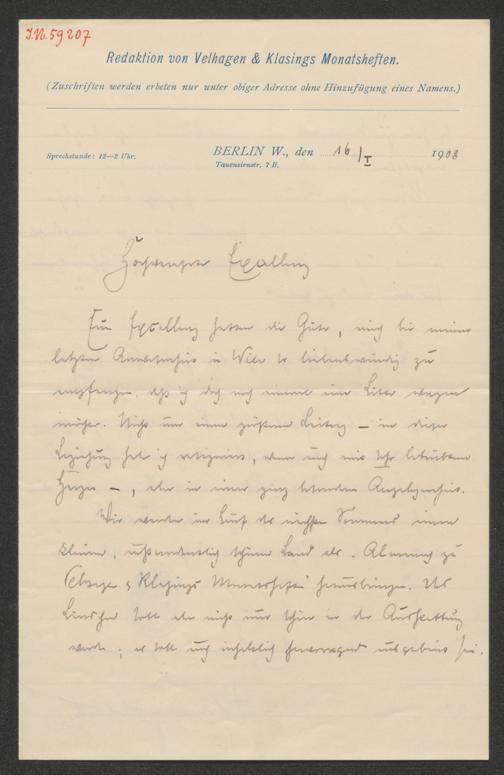 J.N. 59207
Redaktion von Velhagen & Klasings Monatsheften.
(Zuschriften werden erbeten nur unter obiger Adresse ohne Hinzufügung eines Namens.)
Sprechstunde: 12—2 Uhr.
BERLIN W., den 16/I 1908
Tauenzienstr. 7 B.
Hochverehrte Exzellenz
Eure Exzellenz hatten die Güte, mich bei meiner
letzten Anwesenheit in Wien so liebenswürdig zu
empfangen, daß ich doch noch einmal eine Bitte wagen
möchte. Nicht um einen größeren Beitrag — in dieser
Beziehung habe ich resigniert, wenn auch mit sehr betrübtem
Herzen —, aber in einer ganz besonderen Angelegenheit.
Wir werden im Lauf des nächsten Sommers einen
kleinen, außerordentlich schönen Band als Almanach zu
Velhagen & Klasings Monatsheften herausbringen. Das
Bändchen soll aber nicht nur schön in der Ausstattung
werden; es soll auch inhaltlich hervorragend sein.